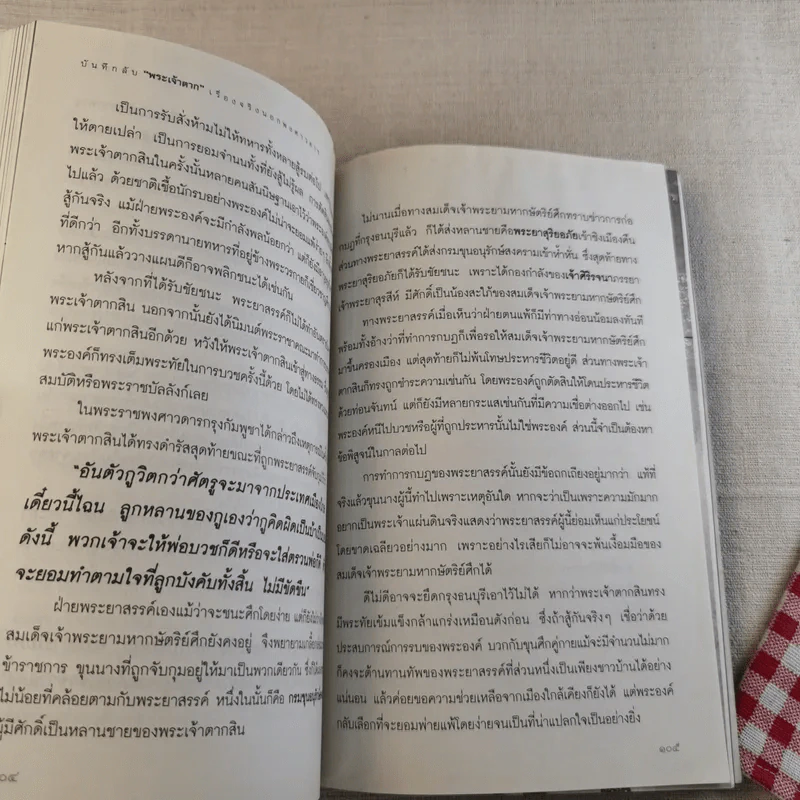 บันทึกลับ "พระเจ้าตาก" เรื่องจริงนอกพงศาวดาร
เป็นการรับสั่งห้ามไม่ให้ทหารทั้งหลายสู้รบต่อไป
ให้ตายเปล่า เป็นการยอมจำนนทั้งที่ยังสู้ไม่รู้ผล
พระเจ้าตากสินในครั้งนั้นหลายคนสันนิษฐานเอาไว้ว่า
ไปแล้ว ด้วยชาติเชื้อนักรบอย่างพระองค์ไม่น่าจะยอมแพ้
สู้กันจริง แม้ฝ่ายพระองค์จะมีกำลังพลน้อยกว่า แต่ก็ยังมี
ที่ดีกว่า อีกทั้งบรรดานายทหารที่อยู่ข้างพระวรกายก็
หากสู้กันแล้ววางแผนดีก็อาจพลิกชนะได้เช่นกัน
หลังจากที่ได้รับชัยชนะ พระยาสรรค์ก็ไม่ได้
พระเจ้าตากสิน นอกจากนั้นยังได้นิมนต์พระราชาคณะมา
แก่พระเจ้าตากสินอีกด้วย หวังให้พระเจ้าตากสินเข้าสู่ทางธรรม
พระองค์ก็ทรงเต็มพระทัยในการบวชครั้งนี้ด้วย โดยไม่ได้
สมบัติหรือพระราชบัลลังก์เลย
ในพระราชพงศาวดารกรุงกัมพูชาได้กล่าวถึงเหตุการณ์
พระเจ้าตากสินได้ทรงดำรัสสุดท้ายขณะที่ถูกพระยาสรรค์
"อันตัวกูวิตกว่าศัตรูจะมาจากประเทศเมือง
เดี๋ยวนี้ไฉน ลูกหลานของกูเองว่ากูคิดผิดเป็นบ้า
ดังนี้ พวกเจ้าจะให้พ่อบวชก็ดีหรือจะใส่ตรวนพ่อก็ดี
จะยอมทำตามใจที่ลูกบังคับทั้งสิ้น ไม่มีขัดขืน"
ฝ่ายพระยาสรรค์เองแม้ว่าจะชนะศึกโดยง่าย
สมเด็จเจ้าพระยามหากษัตริย์ศึกยังคงอยู่ จึงพยายามเกลี้ยกล่อม
ข้าราชการ ขุนนางที่ถูกจับกุมอยู่ให้มาเป็นพวกเดียวกัน
ไม่น้อยที่คล้อยตามกับพระยาสรรค์ หนึ่งในนั้นก็คือ
ผู้มีศักดิ์เป็นหลานชายของพระเจ้าตากสิน
๑๐๔
ไม่นานเมื่อทางสมเด็จเจ้าพระยามหากษัตริย์ศึกทราบข่าวการก่อ
กบฏที่กรุงธนบุรีแล้ว ก็ได้ส่งหลานชายคือพระยาสุริยอภัยเข้าชิงเมืองคืน
ส่วนทางพระยาสรรค์ได้ส่งกรมขุนอนุรักษ์สงครามเข้าห้ำหั่น ซึ่งสุดท้ายทาง
พระยาสุริยอภัยก็ได้รับชัยชนะ เพราะได้กองกำลังของเจ้าศิริรจนาภรรยา
เจ้าพระยาสุรสีห์ มีศักดิ์เป็นน้องสะใภ้ของสมเด็จเจ้าพระยามหากษัตริย์ศึก
ทางพระยาสรรค์เมื่อเห็นว่าฝ่ายตนแพ้ก็มีท่าทางอ่อนน้อมลงทันที
พร้อมทั้งอ้างว่าที่ทำการกบฏก็เพื่อรอให้สมเด็จเจ้าพระยามหากษัตริย์ศึก
มาขึ้นครองเมือง แต่สุดท้ายก็ไม่พ้นโทษประหารชีวิตอยู่ดี ส่วนทางพระเจ้า
ตากสินก็ทรงถูกชำระความเช่นกัน โดยพระองค์ถูกตัดสินให้โดนประหารชีวิต
ด้วยท่อนจันทน์ แต่ก็ยังมีหลายกระแสเช่นกันที่มีความเชื่อต่างออกไป เช่น
พระองค์หนีไปบวชหรือผู้ที่ถูกประหารนั้นไม่ใช่พระองค์ ส่วนนี้จำเป็นต้องหา
ข้อพิสูจน์ในกาลต่อไป
การทำการกบฏของพระยาสรรค์นั้นยังมีข้อถกเถียงอยู่มากว่า แท้ที่
จริงแล้วขุนนางผู้นี้ทำไปเพราะเหตุอันใด หากจะว่าเป็นเพราะความมักมาก
อยากเป็นพระเจ้าแผ่นดินจริงแสดงว่าพระยาสรรค์ผู้นี้ย่อมเห็นแก่ประโยชน์
โดยขาดเฉลียวอย่างมาก เพราะอย่างไรเสียก็ไม่อาจจะพ้นเงื้อมมือของ
สมเด็จเจ้าพระยามหากษัตริย์ศึกได้
ดีไม่ดีอาจจะยึดกรุงธนบุรีเอาไว้ไม่ได้ หากว่าพระเจ้าตากสินทรง
มีพระทัยเข้มแข็งกล้าแกร่งเหมือนดังก่อน ซึ่งถ้าสู้กันจริงๆ เชื่อว่าด้วย
ประสบการณ์การรบของพระองค์ บวกกับขุนศึกคู่กายแม้จะมีจำนวนไม่มาก
ก็คงจะต้านทานทัพของพระยาสรรค์ที่ส่วนหนึ่งเป็นเพียงชาวบ้านได้อย่าง
แน่นอน แล้วค่อยขอความช่วยเหลือจากเมืองใกล้เคียงก็ยังได้ แต่พระองค์
กลับเลือกที่จะยอมพ่ายแพ้โดยง่ายจนเป็นที่น่าแปลกใจเป็นอย่างยิ่ง
๑๐๕